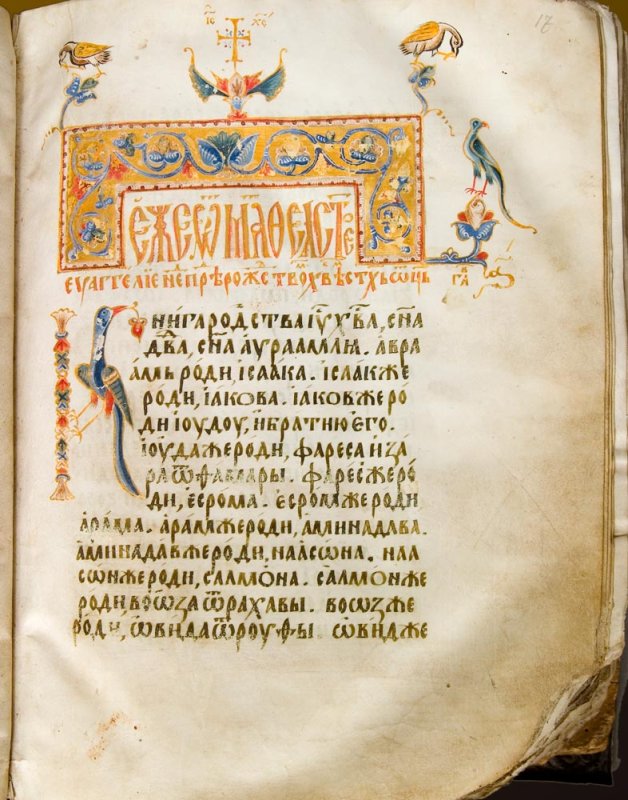 І҃С Х҃С
17
Е́ЖЕ Ѿ МАТѲЕА С҃Т Е
ЕУАГГЕЛІЕ НЕ҃ПРѢРОЖСТВО Х҃ВѢ СТХЬ Ѿ҃ЦЬ Г҃ЛА
Книга родства іу҃ х҃ва, сн҃а
дв҃да, сн҃а аураамлѧ. авра
амь роди, ісаака. ісаак же
роди, іакова. іаков же ро
ди іоудоу, и братию его.
іоуда же роди, фареса и за
ра ѿ фамары. фарес же ро
ди, есрома. есром же роди
арама. арам же роди, аминадава.
аминадав же роди, наасѡна. наа
сѡн же роди, салмона. салмон же
роди воѡза ѿ рахавы. воѡз же
роди, ѡвида ѿ роуфы. ѡвид же